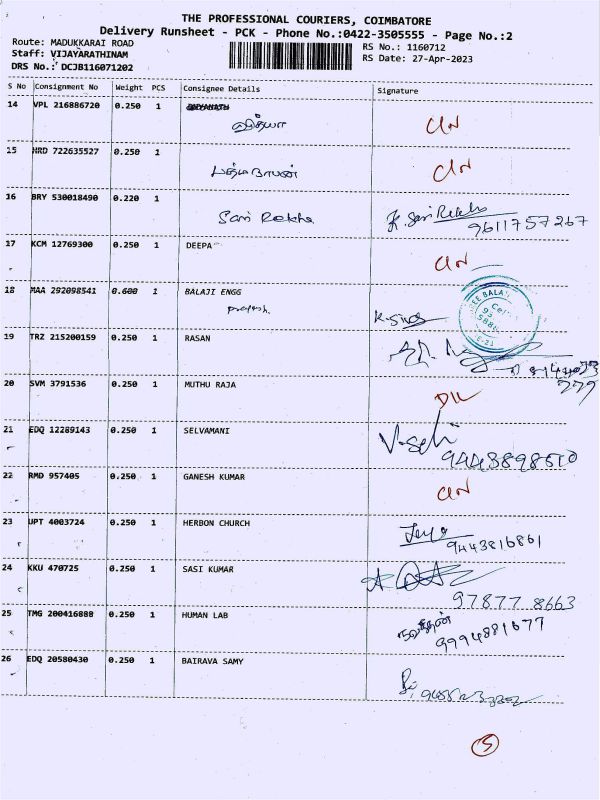 THE PROFESSIONAL COURIERS, COIMBATORE
Delivery Runsheet - PCK - Phone No.:0422-3505555 - Page No.:2
Route: MADUKKARAI ROAD
Staff: VIJAYARATHINAM
DRS No.: DCJB116071202
RS No.: 1160712
RS Date: 27-Apr-2023
S No Consignment No Weight PCS Consignee Details Signature
14 VPL 216886720 0.250 1
15 HRD 722635527 0.250 1
பத்மநாபன்
16 BRY 530018490 0.220 1
Sari Rekha K. Sari Rekha
9611757267
17 KCM 12769300 0.250 1 DEEPA
18 MAA 292098541 0.600 1 BALAJI ENGG
19 TRZ 215200159 0.250 1 RASAN
20 SVM 3791536 0.250 1 MUTHU RAJA
DIL
21 EDQ 12289143 0.250 1 SELVAMANI
9443898510
22 RMD 957405 0.250 1 GANESH KUMAR
23 UPT 4003724 0.250 1 HERBON CHURCH
9443816861
24 KKU 470725 0.250 1 SASI KUMAR
97877 8663
25 TMG 200416888 0.250 1 HUMAN LAB
9994881677
26 EDQ 20580430 0.250 1 BAIRAVA SAMY
5